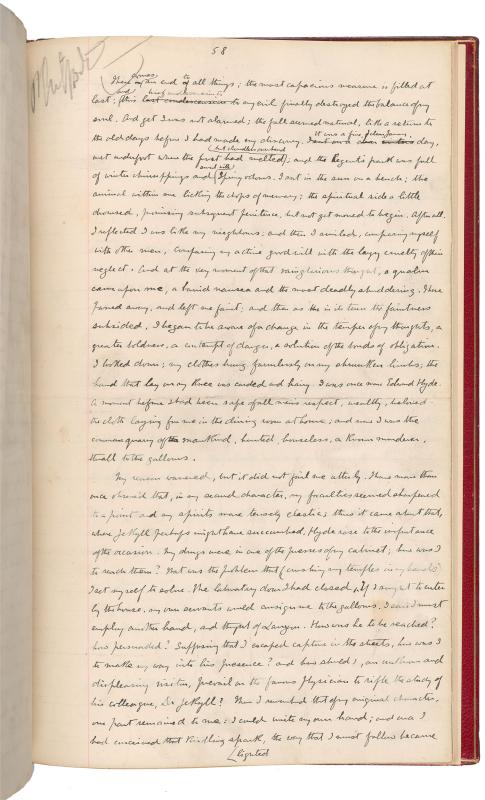 58
There comes an end to all things; the most capacious measure is filled at
last; And this brief condescension to my evil finally destroyed the balance of my
soul. And yet I was not alarmed; the fall seemed natural, like a return to
the old days before I had made my discovery. It was a fine, clear, January day,
wet underfoot where the frost had melted, (but cloudless overhead); and the Regents park was full
of winter chirrupings and (sweet with) Spring odours. I sat in the sun on a bench; the
animal within me licking the chops of memory; the spiritual side a little
drowsed, promising subsequent penitence, but not yet moved to begin. After all,
I reflected I was like my neighbours; and then I smiled, comparing myself
with other men, comparing my active goodwill with the lazy cruelty of their
neglect. And at the very moment of that vainglorious thought, a qualm
came upon me, a horrid nausea and the most deadly shuddering. These
passed away, and left me faint; and then as in its turn the faintness
subsided, I began to be aware of a change in the temper of my thoughts, a
greater boldness, a contempt of danger, a solution of the bonds of obligation.
I looked down; my clothes hung formlessly on my shrunken limbs; the
hand that lay on my knee was corded and hairy. I was once more Edward Hyde.
A moment before I had been safe of all men's respect, wealthy, beloved -
the cloth laying for me in the dining room at home; and now I was the
common quarry of mankind, hunted, houseless, a known murderer,
thrall to the gallows.
My reason wavered, but it did not fail me utterly. I have more than
once observed that, in my second character, my faculties seemed sharpened
to a point and my spirits more tensely elastic; thus it came about that,
where Jekyll perhaps might have succumbed, Hyde rose to the importance
of the occasion. My drugs were in one of the presses of my cabinet; how was I
to reach them? That was the problem that (crushing my temples in my hands)
I set myself to solve. The laboratory door I had closed, If I sought to enter
by the house, my own servants would consign me to the gallows. I saw I must
employ another hand, and thought of Lanyon. How was he to be reached?
how persuaded? Supposing that I escaped capture in the streets, how was I
to make my way into his presence? and how should I, an unknown and
displeasing visitor, prevail on the famous physician to rifle the study of
his colleague, Dr Jekyll? Then I remembered that of my original character,
one part remained to me: I could write my own hand; and once I
had conceived that kindling spark, the way that I must follow became
(lighted